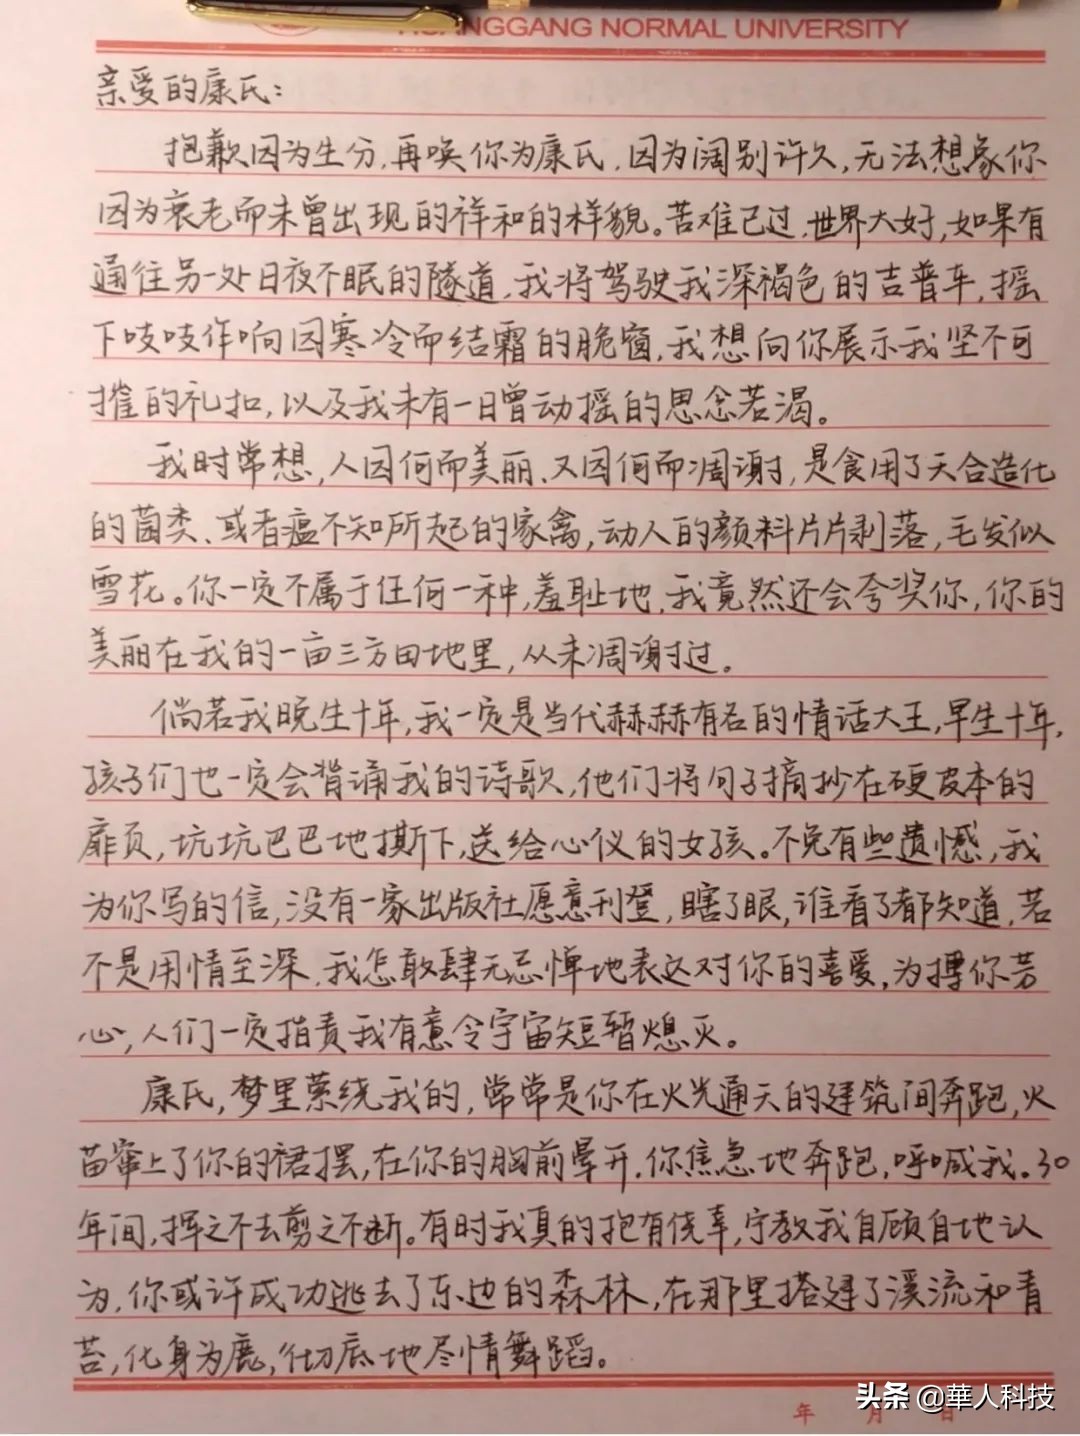 HUANGGANG NORMAL UNIVERSITY
亲爱的康氏：
抱歉因为生分，再唤你为康氏，因为阔别许久，无法想象你
因为衰老而未曾出现的祥和的样貌。苦难已过，世界大好，如果有
通往另一处日夜不眠的隧道，我将驾驶我深褐色的吉普车，摇
下吱吱作响因寒冷而结霜的脆窗，我想向你展示我坚不可
摧的礼扣，以及我未有一日曾动摇的思念若渴。
我时常想，人因何而美丽、又因何而凋谢，是食用了天合造化
的菌类、或者瘟不知所起的家禽，动人的颜料片片剥落，毛发似
雪花。你一定不属于任何一种，羞耻地，我竟然还会夸奖你，你的
美丽在我的一亩三方田地里，从未凋谢过。
倘若我晚生十年，我一定是当代赫赫有名的情话大王，早生十年，
孩子们也一定会背诵我的诗歌，他们将句子摘抄在硬皮本的
扉页，坑坑巴巴地撕下，送给心仪的女孩。不免有些遗憾，我
为你写的信，没有一家出版社愿意刊登，瞎了眼，谁看了都知道，若
不是用情至深，我怎敢肆无忌惮地表达对你的喜爱，为搏你芳
心，人们一定指责我有意令宇宙短暂熄灭。
康氏，梦里萦绕我的，常常是你在火光通天的建筑间奔跑，火
苗窜上了你的裙摆，在你的胸前晕开，你焦急地奔跑，呼喊我。30
年间，挥之不去剪之不断。有时我真的抱有侥幸，宁教我自顾自地认
为，你或许成功逃去了东边的森林，在那里搭建了溪流和青
苔，化身为鹿，彻底地尽情舞蹈。
年 月 日
头条 @華人科技